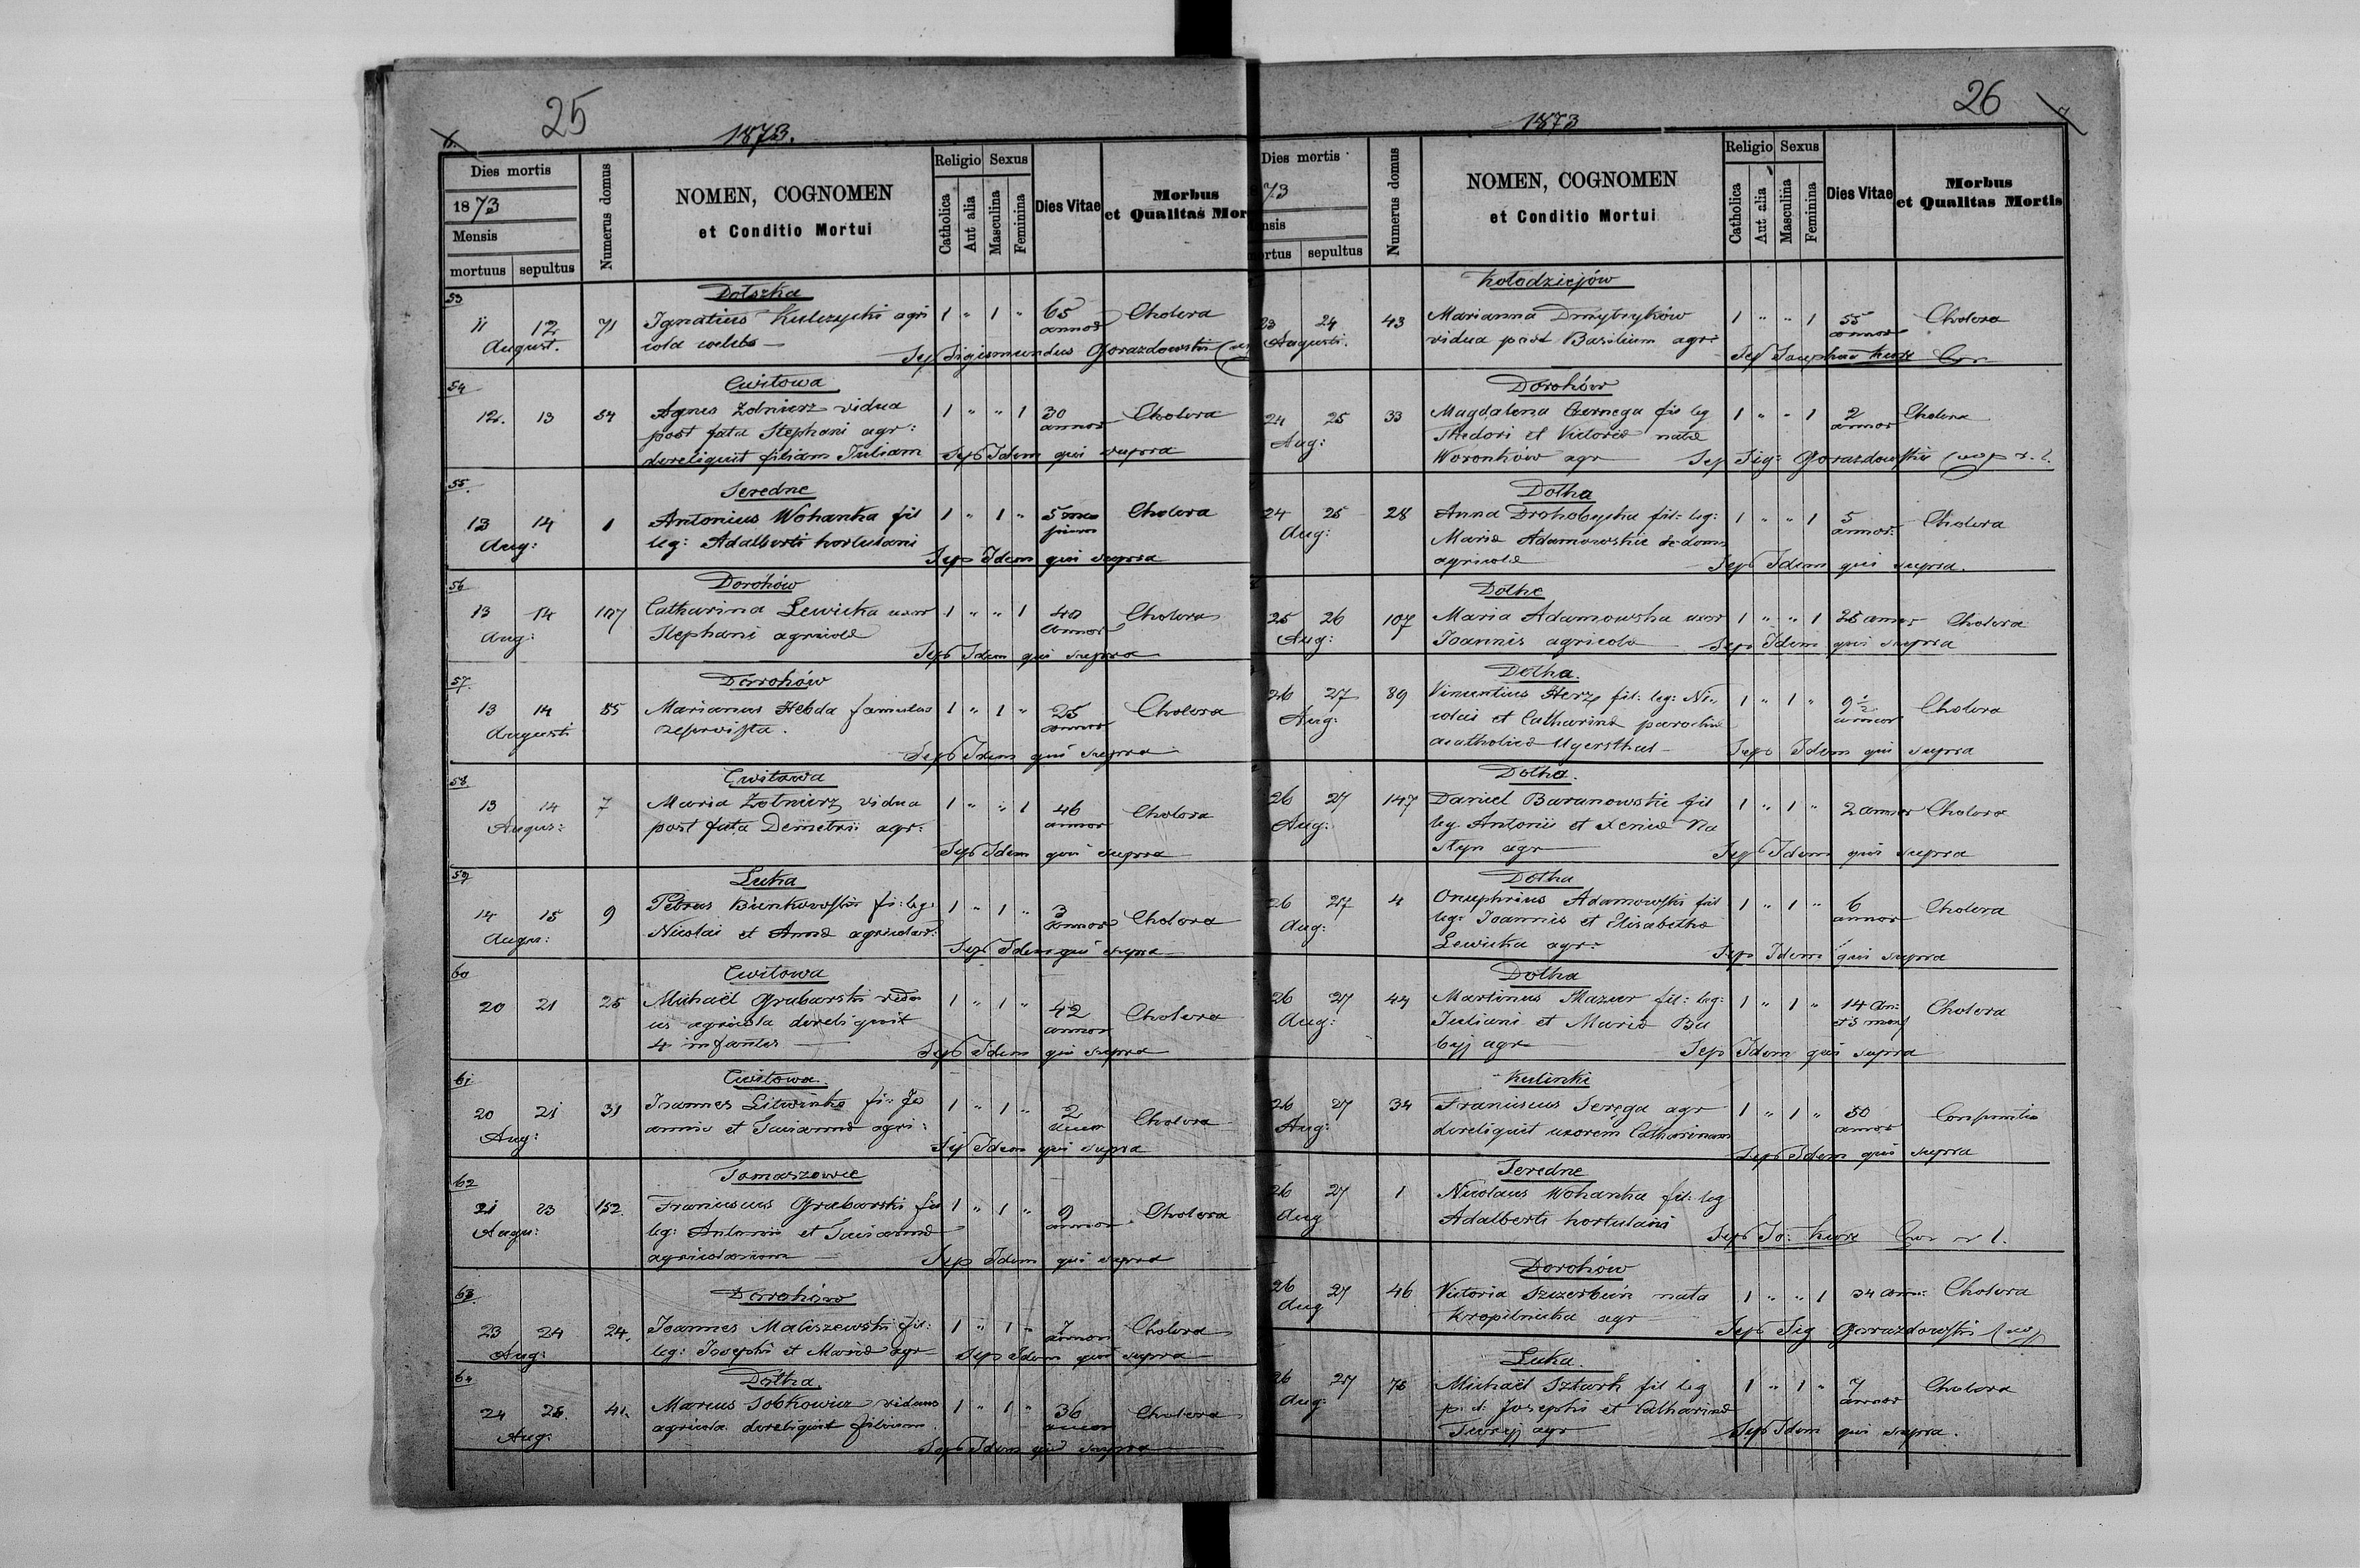 25
1873.
6.
Dies mortis
1873
Mensis
mortuus sepultus
Numerus domus
NOMEN, COGNOMEN
et Conditio Mortui
Religio
Catholica
Aut alia
Sexus
Masculina
Feminina
Dies Vitae
Morbus
et Qualitas Mor
53
Dołszka
11 12 71 Ignatius Kulczycki agri 1 " 1 " 65 Cholera
August. cola celebs annor
Sep Sigismundus Gorazdowski
54
Cwitowa
12. 13 54 Agnes Żołnierz vidua 1 " " 1 30 Cholera
post fata Stephani agr: annor
dereliquit filiam Juliam Sep Idem qui supra
55.
Seredne
13 14 1 Antonius Wohanka fil 1 " 1 " 5 Cholera
Aug: leg: Adalberti hortulani
Sep Idem qui supra
56
Dorohów
13 14 107 Catharina Lewicka uxor 1 " " 1 40 Cholera
Aug: Stephani agricolæ annor
Sep Idem qui supra
57.
Dorohów
13 14 85 Marianus Hebda famulus 1 " 1 " 25 Cholera
Augusti annor
Sep Idem qui supra
58.
Cwitowa
13 14 7 Maria Żołnierz vidua 1 " " 1 46 Cholera
Augus: post fata Demetrii agr: annor
Sep Idem qui supra
59
Łuka
14 15 9 Petrus Bienkowski fi: leg: 1 " 1 " 3 Cholera
Augus: Nicolai et Annæ agricolar: annor
Sep Idem qui supra
60
Cwitowa
20 21 25 Michaël Grabarski vidu 1 " 1 " 42 Cholera
us agricola dereliquit annor
4 infantes Sep Idem qui supra
61
Cwitowa.
20 21 31 Joannes Litwinka fi: Jo 1 " 1 " 2 Cholera
Aug: annis et Susannæ agri:
Sep Idem qui supra
62
Tomaszowce
21 23 152. Franciscus Grabarski fil 1 " 1 " 9 Cholera
Augu: leg: Antonii et Susannæ annor
agricolarum Sep Idem qui supra
63.
Dorohów
23 24 24. Joannes Maliszewski fil: 1 " 1 " 7 Cholera
Aug: leg: Josephi et Mariæ agr annor
Sep Idem qui supra
64
Dołha.
24 25. 41. Marcus Sobkowicz viduus 1 " 1 " 36 Cholera
Aug: agricola dereliquit filium annor
Sep Idem qui supra
26
1873
7
Dies mortis
73
nsis
ortus sepultus
Numerus domus
NOMEN, COGNOMEN
et Conditio Mortui
Religio
Catholica
Aut alia
Sexus
Masculina
Feminina
Dies Vitae
Morbus
et Qualitas Mortis
Kołodziejów
23 24 43 Marianna Dmytryków 1 " " 1 55 Cholera
Augusti. vidua post Basilium agr: annor
Dorohów
24 25 33 Magdalena Czernega fil leg 1 " " 1 2 Cholera
Aug: Thedori et Victoriæ natæ annor
Woronków agr Sep Sig: Gorazdowski
Dołha
24 25 28 Anna Drohobycka fil: leg: 1 " " 1 5 Cholera
Aug: Mariæ Adamowskie annor:
agricolæ Sep Idem qui supra.
Dołhe
25 26 107 Maria Adamowska uxor 1 " " 1 25 annor Cholera
Aug: Joannis agricola Sep Idem qui supra
Dołha.
26 27 89 Vincentius Herz fil: leg: Ni 1 " 1 " 9½ Cholera
Aug: colai et Catharinæ parochiæ annor
acatholicæ Ugersthal Sep Idem qui supra
Dołha.
26 27 147 Daniel Baranowski fil 1 " 1 " 2 annor Cholera
Aug: leg Antonii et Xeniæ Na
styn agr Sep Idem qui supra
Dołha
26 27 4 Onuphrius Adamowski fil 1 " 1 " 6 Cholera
Aug: leg: Joannis et Elisabethæ annor
Lewicka agr: Sep Idem qui supra
Dołha
26 27 44 Martinus Mazur fil: leg: 1 " 1 " 14 an: Cholera
Aug: Juliani et Mariæ Ba et 3 mens
byj agr Sep Idem qui supra
Kulinki
26 27 34 Franciscus Seręga agr 1 " 1 " 50
Aug: dereliquit uxorem Catharinam annor
Sep Idem qui supra
Seredne
26 27 1 Nicolaus Wohanka fil: leg
Aug Adalberti hortulani
Dorohów
26 27 46 Victoria Szczerbin nata 1 " " 1 34 ann: Cholera
Aug Kropilnicka agr
Sep Sig Gorazdowski
Łuka.
26 27 76 Michaël Szturk fil leg 1 " 1 " 7 Cholera
Aug: Josephi et Catharinæ annor
agr Sep Idem qui supra.